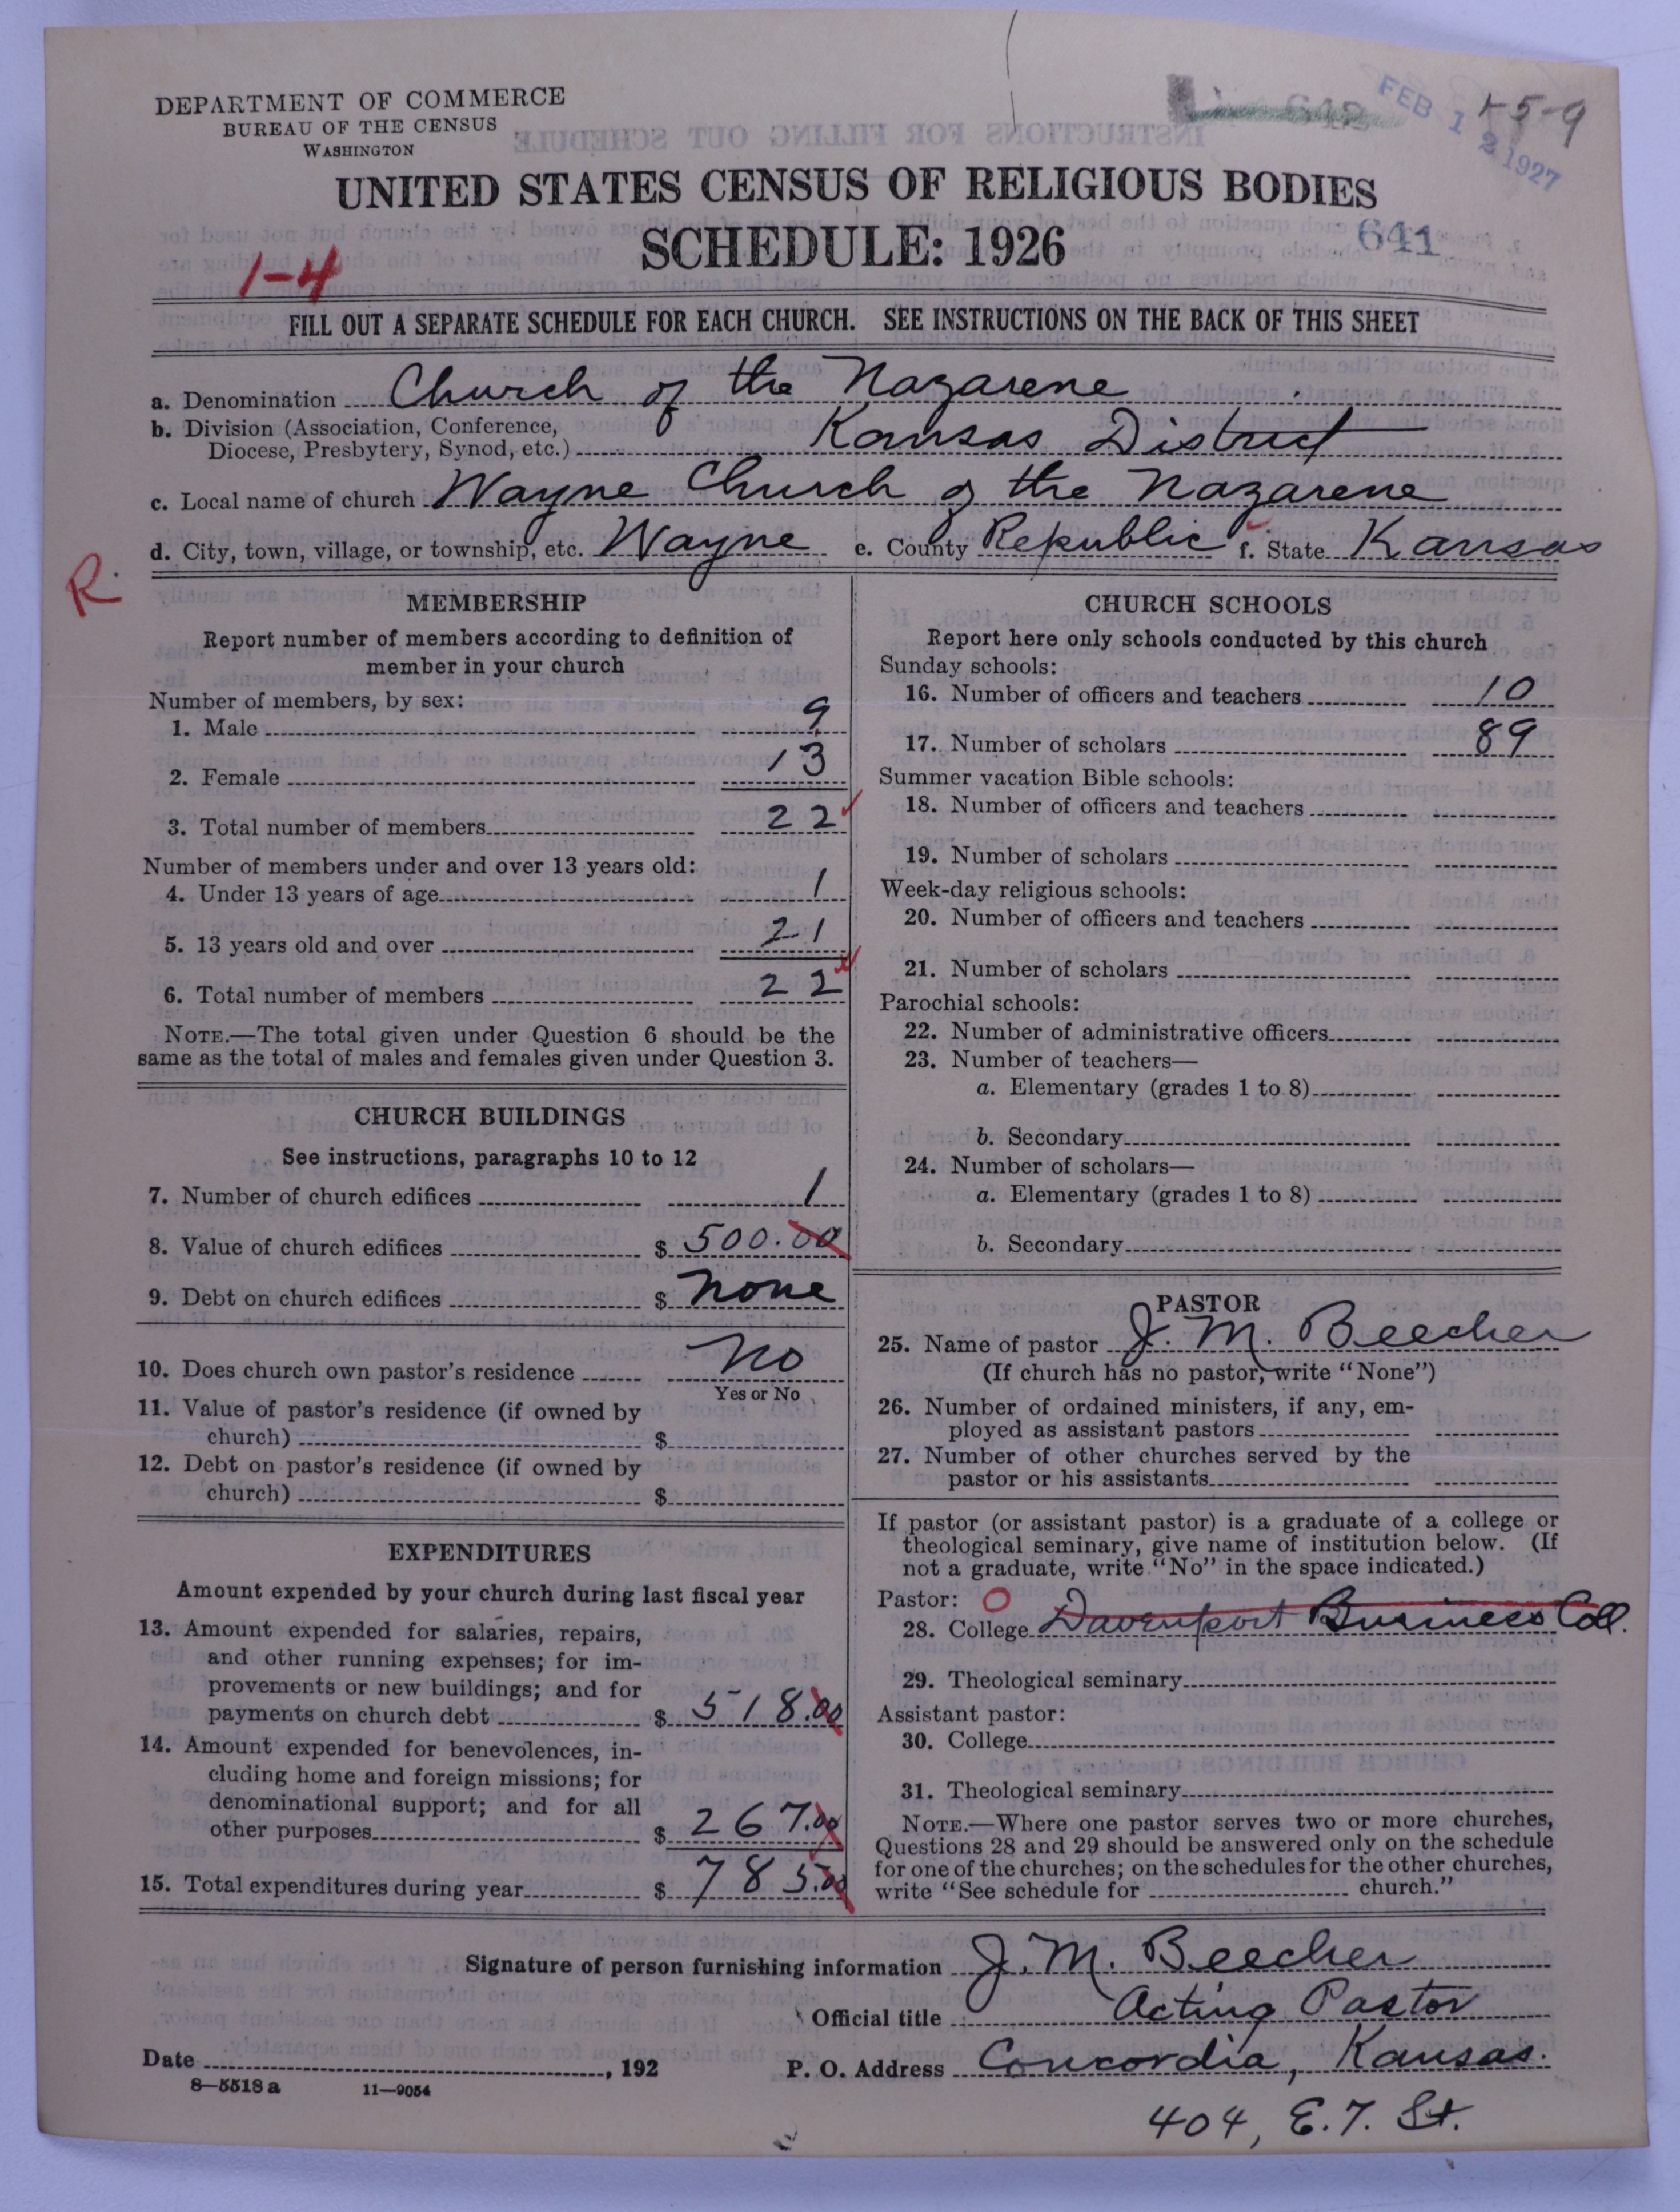 DEPARTMENT OF COMMERCE
BUREAU OF THE CENSUS
WASHINGTON
FEB 12 1927
1-5-9
UNITED STATES CENSUS OF RELIGIOUS BODIES
SCHEDULE: 1926
641
1-4
FILL OUT A SEPARATE SCHEDULE FOR EACH CHURCH. SEE INSTRUCTIONS ON THE BACK OF THIS SHEET
a. Denomination Church of the Nazarene
b. Division (Association, Conference,
Diocese, Presbytery, Synod, etc.) Kansas District
c. Local name of church Wayne Church of the Nazarene
d. City, town, village, or township, etc. Wayne e. County Republic f. State Kansas
R.
MEMBERSHIP
Report number of members according to definition of
member in your church
Number of members, by sex:
1. Male 9
2. Female 13
3. Total number of members 22
Number of members under and over 13 years old:
4. Under 13 years of age 1
5. 13 years old and over 21
6. Total number of members 22
NOTE.—The total given under Question 6 should be the
same as the total of males and females given under Question 3.
CHURCH BUILDINGS
See instructions, paragraphs 10 to 12
7. Number of church edifices 1
8. Value of church edifices $ 500.00
9. Debt on church edifices $ none
10. Does church own pastor's residence no
Yes or No
11. Value of pastor's residence (if owned by
church) $
12. Debt on pastor's residence (if owned by
church) $
EXPENDITURES
Amount expended by your church during last fiscal year
13. Amount expended for salaries, repairs,
and other running expenses; for im-
provements or new buildings; and for
payments on church debt $ 518.00
14. Amount expended for benevolences, in-
cluding home and foreign missions; for
denominational support; and for all
other purposes $ 267.00
15. Total expenditures during year $ 785.00
CHURCH SCHOOLS
Report here only schools conducted by this church
Sunday schools:
16. Number of officers and teachers 10
17. Number of scholars 89
Summer vacation Bible schools:
18. Number of officers and teachers
19. Number of scholars
Week-day religious schools:
20. Number of officers and teachers
21. Number of scholars
Parochial schools:
22. Number of administrative officers
23. Number of teachers—
a. Elementary (grades 1 to 8)
b. Secondary
24. Number of scholars—
a. Elementary (grades 1 to 8)
b. Secondary
PASTOR
25. Name of pastor J. M. Beecher
(If church has no pastor, write "None")
26. Number of ordained ministers, if any, em-
ployed as assistant pastors
27. Number of other churches served by the
pastor or his assistants
If pastor (or assistant pastor) is a graduate of a college or
theological seminary, give name of institution below. (If
not a graduate, write "No" in the space indicated.)
Pastor: O
28. College Davenport Business Coll.
29. Theological seminary
Assistant pastor:
30. College
31. Theological seminary
NOTE.—Where one pastor serves two or more churches,
Questions 28 and 29 should be answered only on the schedule
for one of the churches; on the schedules for the other churches,
write "See schedule for church."
Signature of person furnishing information J. M. Beecher
Official title Acting Pastor
Date , 192
P. O. Address Concordia, Kansas.
8—5518 a 11—9054
404, E. 7. St.